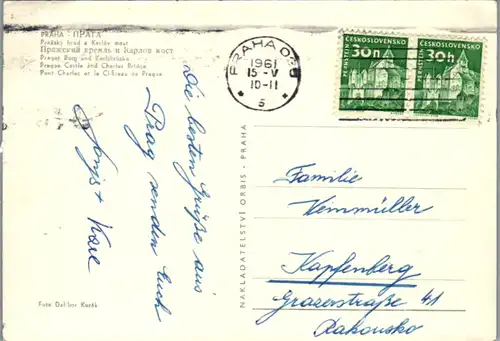 PRAHA - ПРАГА
Pražský hrad a Karlův most
Пражский кремль и Карлов мост
Prager Burg und Karlsbrücke
Prague Castle and Charles Bridge
Pont Charles et le Château de Prague
PRAHA
1961
15-V
10-11
5
30h ČESKOSLOVENSKO PERNŠTEJN
ČESKOSLOVENSKO 30h PERNŠTEJN
Die besten Grüße aus
Prag senden Euch
+ Karl
NAKLADATELSTVÍ ORBIS - PRAHA
Familie
Hemmüller
Kapfenberg
Grazerstraße 41
Rakousko
Foto Dalibor Kusák